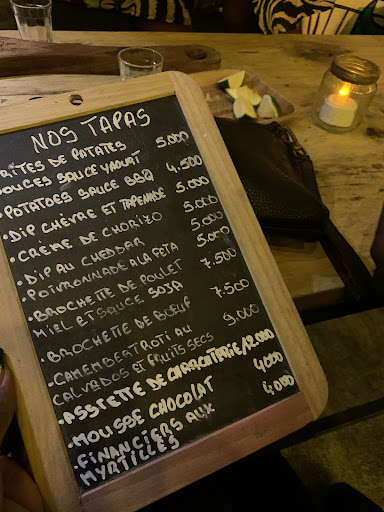 NOS TAPAS
FRITES DE PATATES 5.000
DOUCES SAUCE YAOURT
• POTATOES SAUCE BBQ 4.500
• DIP CHÈVRE ET TAPENADE 5.000
• CRÈME DE CHORIZO 5.000
• DIP AU CHEDDAR 5.000
• POIVRONNADE A LA FETA 5.000
• BROCHETTE DE POULET 7.500
MIEL ET SAUCE SOJA
• BROCHETTE DE BŒUF 7.500
• CAMEMBERT ROTI AU 9.000
CALVADOS ET FRUITS SECS
• ASSIETTE DE CHARCUTERIE/12.000
• MOUSSE CHOCOLAT 4000
• FINANCIERS AUX 4000
MYRTILLES